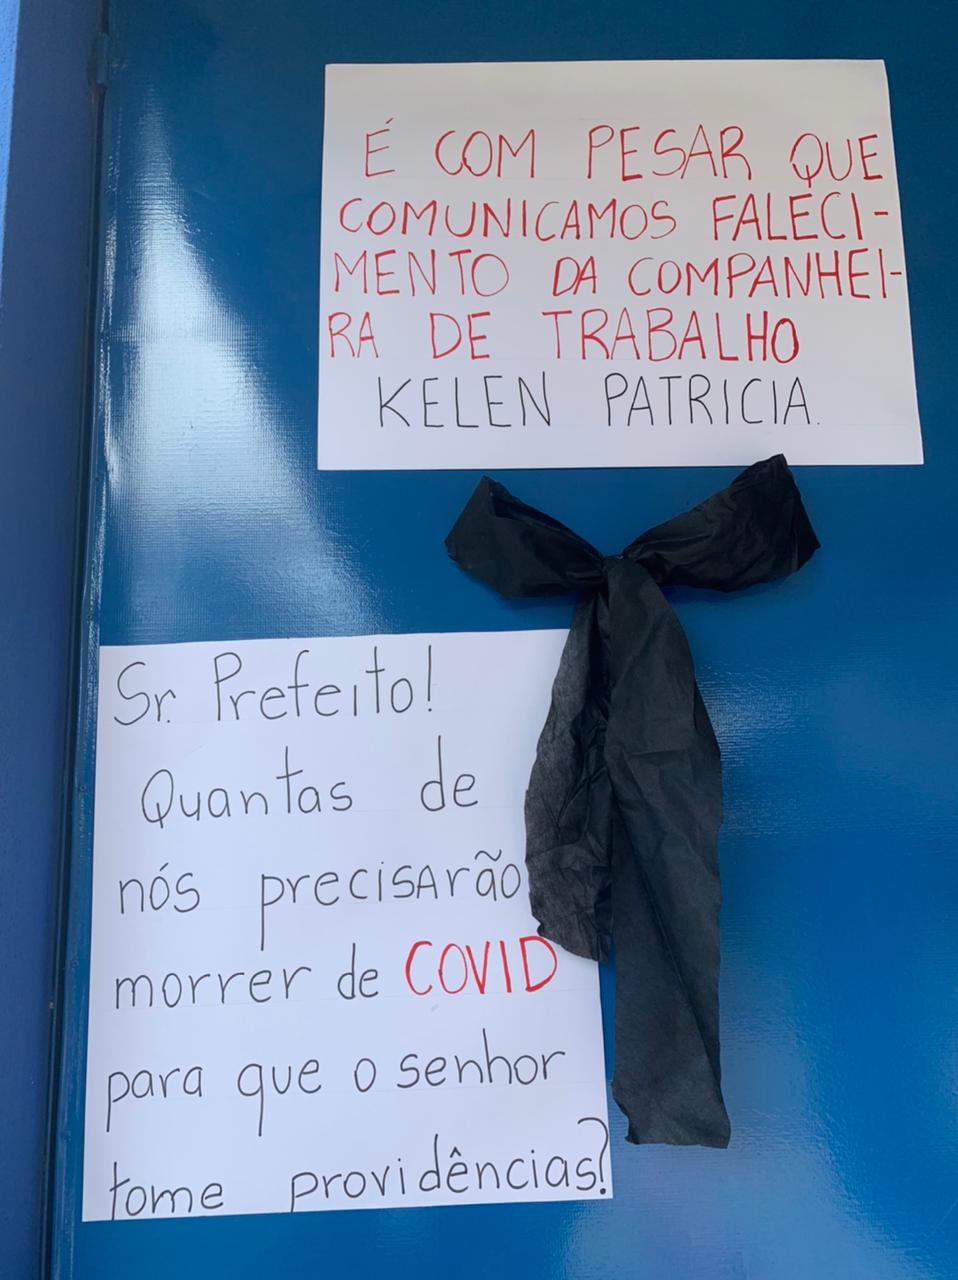 É COM PESAR QUE
COMUNICAMOS FALECI-
MENTO DA COMPANHEI-
RA DE TRABALHO
KELEN PATRICIA.
Sr. Prefeito!
Quantas de
nós precisarão
morrer de COVID
para que o senhor
tome providências?